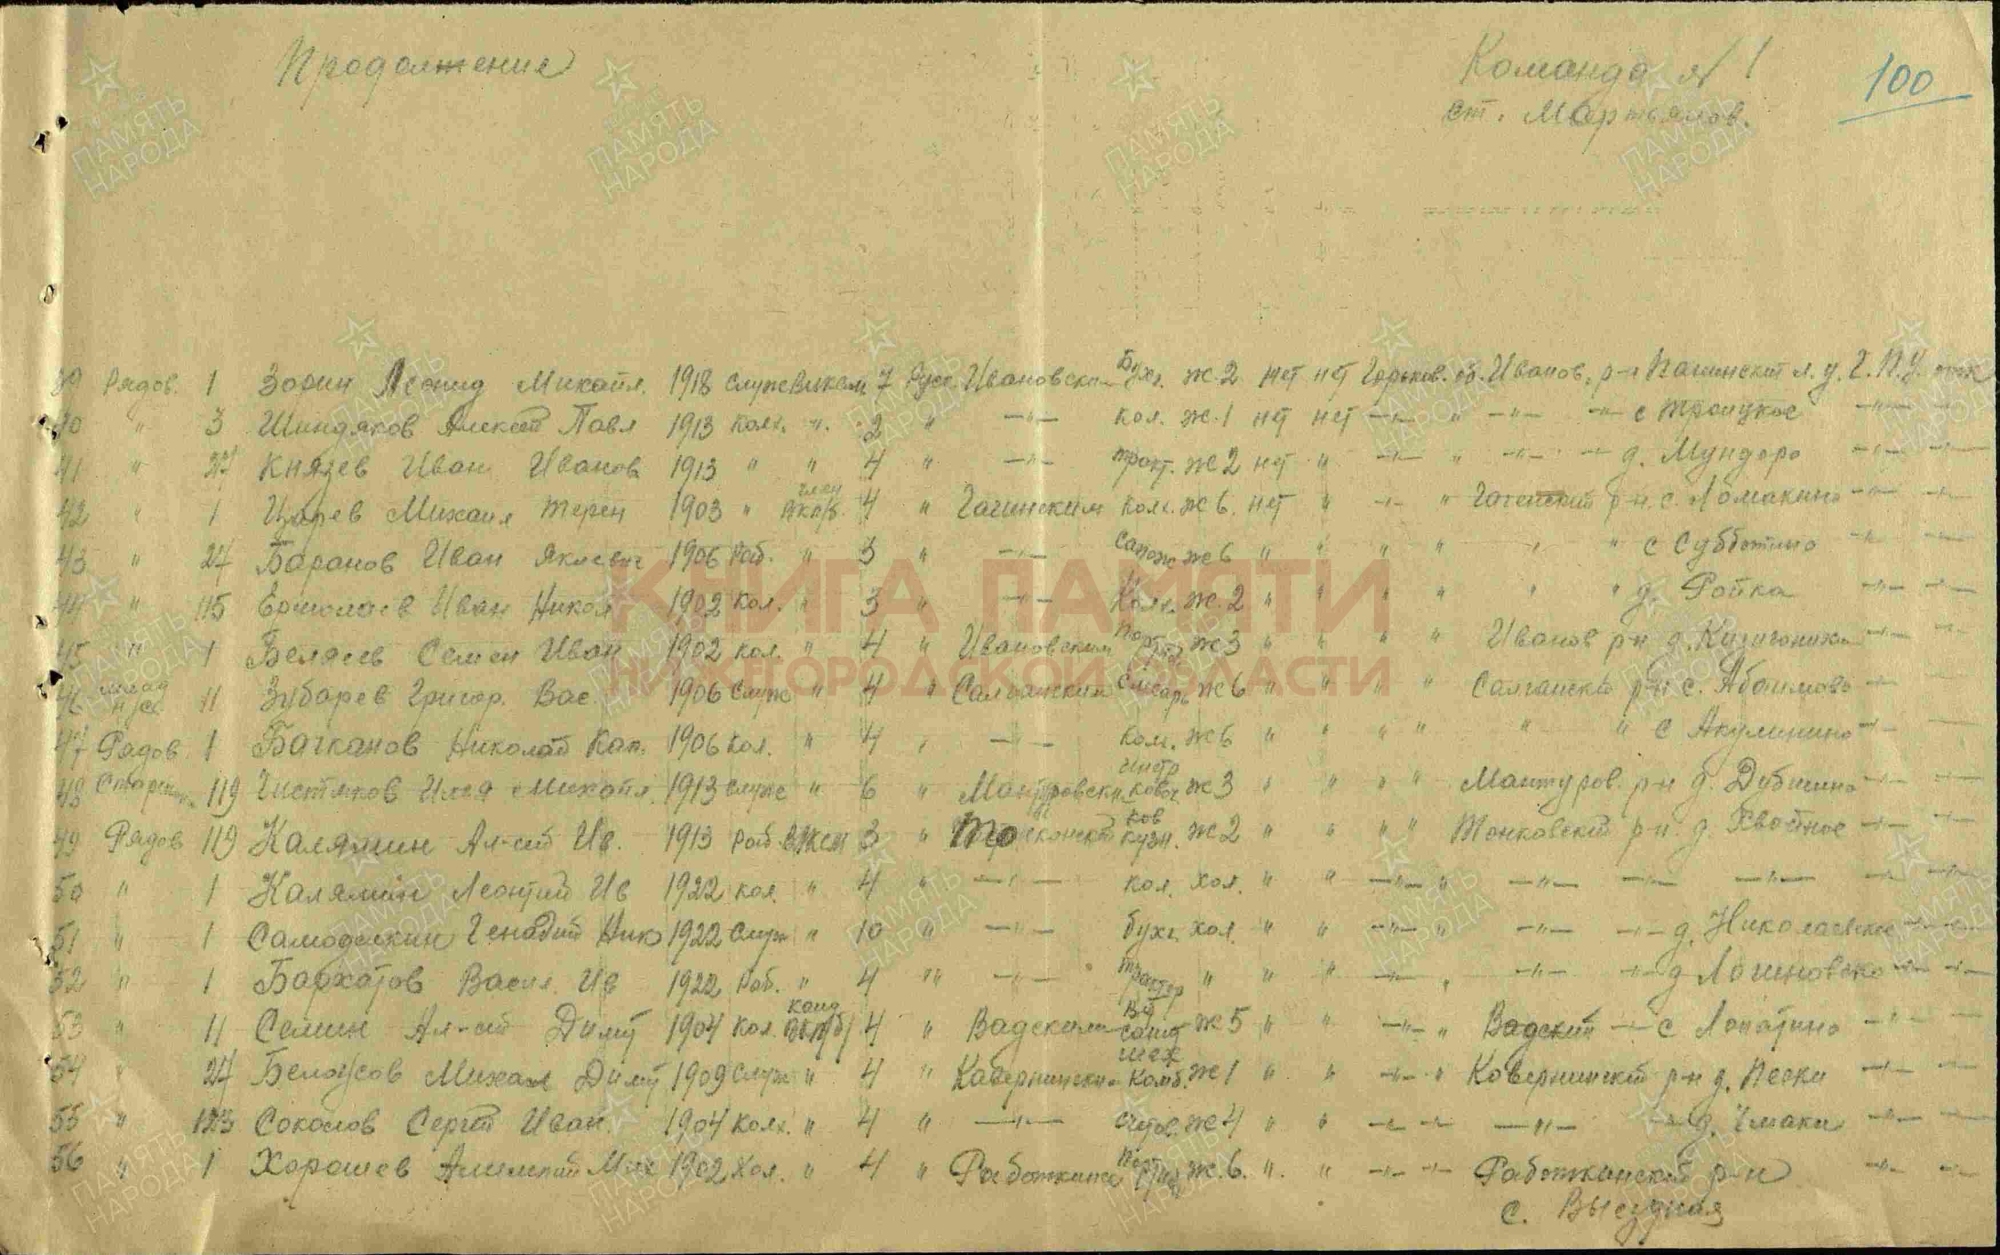 Продолжение
Команда № 1
ст. Мартьянов.
100
39 Рядов. 1 Зорин Леонид Михайл. 1918 служ ВЛКСМ 7 Русс. Ивановским Бухг. ж.2 нет нет Горьков. об. Иванов. р-н
40 " 3 Шиндяков Алексей Павл 1913 колх. ". 2 " —"— кол. ж.1 нет нет —"— " —"— —"— с Троицкое —"— —
41 " 27 Князев Иван Иванов 1913 " " 4 " —"— тракт. ж 2 нет " —"— " —"— —"— д. Мундоро —"— —
42 " 1 Царев Михаил Терен 1903 " член ВКП/б. 4 " Гагинским колх. ж 6. нет " —"— " Гагинский р-н. с. Ломакино —"— —
43 " 27 Баранов Иван Яклевич 1906 Раб. " 3 " —"— сапож ж 6 " " " " " " с Субботино —"— —
44 " 115 Ермолаев Иван Никол 1902 кол. " 3 " —"— Колх. ж.2 " " " " " " д. Ройка —"— —
45 " 1 Беляев Семен Иван 1902 кол. " 4 " Ивановским Портн ж 3 " " " " Иванов р-н д. —"— —
46 млад 11 Зубарев Григор. Вас. 1906 служ " 4 " Салганским Слесарь ж 6 " " " " Салгански р-н с. Абаимово —"— —
47 Рядов. 1 Бачканов Николай Кап. 1906 кол. " 4 " —"— ком. ж 6 " " " " " " с Акулинино —"— —
48 119 Чистяков Илья Михайл. 1913 служ " 6 " Мантуровским ж 3 " " " " Мантуров. р-н д. —"— —
49 Рядов 119 Калямин Ал-ей Ив. 1913 раб. ВЛКСМ 3 " кузн. ж 2 " " " " Тонковский р-н. д. Хвойное —"— —
50 " 1 Калямин Леонтий Ив 1922 кол. " 4 " —"— кол. хол. " " —"— " —"— —"— —"— —"— —
51 " 1 Самоделкин Генадий Ник 1922 служ " 10 " —"— бухг. хол. " " —"— " —"— —"— д. Николаевское —"— —
52 " 1 Бархатов Васил. Ив 1922 Раб. " 4 " —"— трактор " " " —"— " —"— —"— д Логиново —"— —
53 " 11 Семин Ал-ей Дмит 1904 кол. канд ВКП/б/ 4 " Вадским ж 5 " " —"— " Вадский —"— с Лопатино —"— —
54 " 27 Белоусов Михаил Дмит 1909 служ " 4 " Ковернинским мех комб. ж 1 " " —"— " Ковернинский р-н д. Пески —"— —
55 " 123 Соколов Сергей Иван. 1904 колх. " 4 " —"— счетов. ж 4 " " —"— —"— —"— —"— д. —"— —
56 " 1 Хорошев Алексей Мих 1902 кол. " 4 " Работкинск Портн ж. 6. " " —"— —"— Работкинский р-н —"— —
с. Выседная
КНИГА ПАМЯТИ
НИЖЕГОРОДСКОЙ ОБЛАСТИ
ПАМЯТЬ НАРОДА